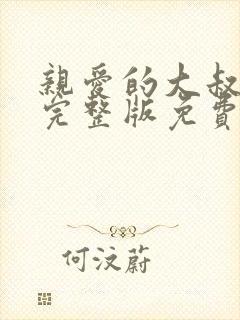 親愛的大叔
完整版免費
何汶蔚